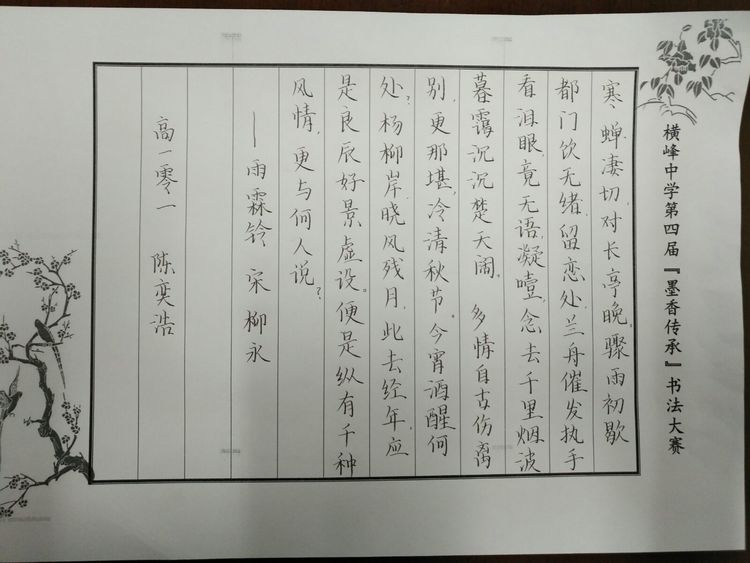 横峰中学第四届『墨香传承』书法大赛
寒蝉凄切,对长亭晚。骤雨初歇
都门饮无绪,留恋处,兰舟催发执手
看泪眼,竟无语凝噎,念去千里烟波
暮霭沉沉楚天阔。多情自古伤离
别,更那堪,冷清秋节。今宵酒醒何
处?杨柳岸,晓风残月,此去经年,应
是良辰好景虚设。便是纵有千种
风情,更与何人说?
—雨霖铃 宋 柳永
高一零一 陈奕浩